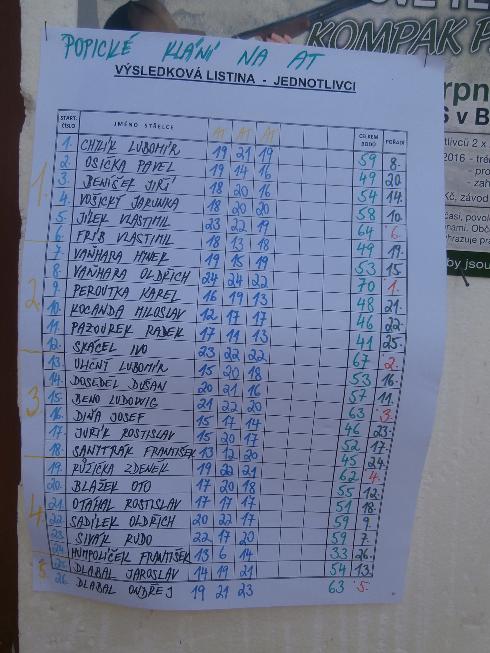 POPICKÉ KLÁNÍ NA AT
VÝSLEDKOVÁ LISTINA - JEDNOTLIVCI
START. ČÍSLO JMÉNO STŘELCE AT AT AT CELKEM BODŮ POŘADÍ
1. LUBOMÍR 19 21 19 59 8.
2. OSIČKA PAVEL 19 14 16 49 20.
3. BENÍŠEK JIŘÍ 18 20 16 54 14.
4. VOŠICKÝ JARUNKA 18 20 20 58 10.
5. JÍLEK VLASTIMIL 23 22 19 64 6.
6. FRÍB VLASTIMIL 18 13 18 49 19.
7. VAŇHARA HYNEK 19 15 19 53 15.
8. VAŇHARA OLDŘICH 24 24 22 70 1.
9. PEROUTKA KAREL 16 19 13 48 21.
10. KOCANDA MILOSLAV 12 17 17 46 22.
11. PAZOUREK RADEK 17 11 13 41 25.
12. SKÁCEL IVO 23 22 22 67 2.
13. ULIČNÝ LUBOMÍR 15 20 18 53 16.
14. DOSEDEL DUŠAN 20 21 16 57 11.
15. BENO LUDOWIG 21 22 20 63 3.
16. DIŇA JOSEF 15 17 14 46 23.
17. JUŘÍK ROSTISLAV 15 20 17 52 17.
18. FRANTIŠEK 13 12 20 45 24.
19. RŮŽIČKA ZDENEK 19 22 21 62 4.
20. BLAŽEK OTO 17 20 18 55 12.
21. OTÁHAL ROSTISLAV 17 17 17 51 18.
22. SADÍLEK OLDŘICH 20 22 17 59 9.
23. SIVÁK RUDO 22 17 20 59 7.
24. HUMPOLÍČEK FRANTIŠEK 13 6 14 33 26.
25. DLABAL JAROSLAV 14 19 21 54 13.
26 DLABAL ONDŘEJ 19 21 23 63 5.
1.
2.
3.
4.
5.
KOMPAK